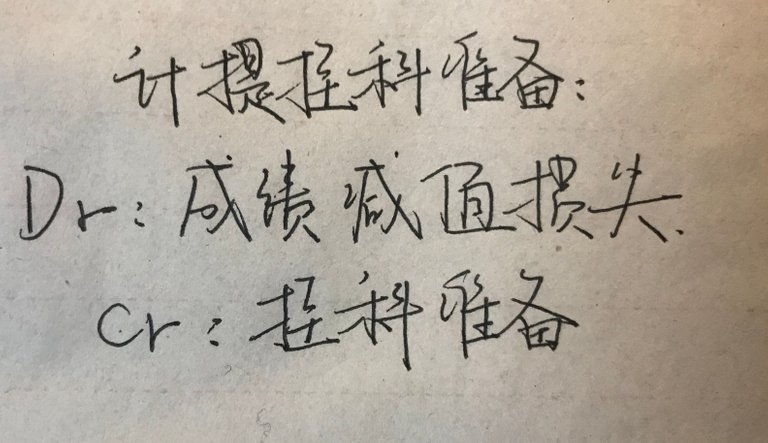 计提挂科准备:
Dr: 成绩减值损失.
Cr: 挂科准备